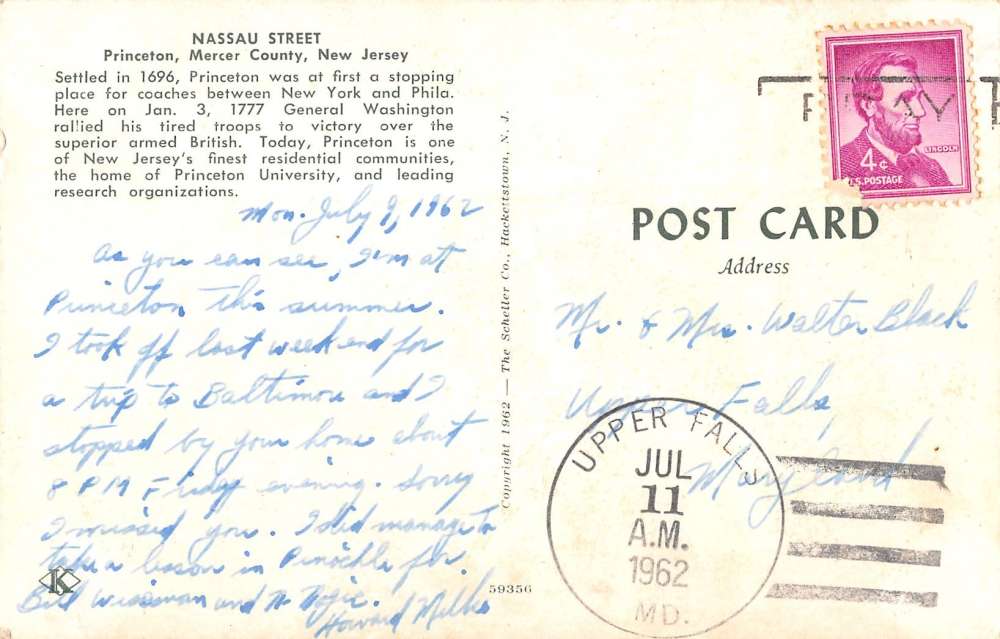 NASSAU STREET
Princeton, Mercer County, New Jersey
Settled in 1696, Princeton was at first a stopping
place for coaches between New York and Phila.
Here on Jan. 3, 1777 General Washington
rallied his tired troops to victory over the
superior armed British. Today, Princeton is one
of New Jersey's finest residential communities,
the home of Princeton University, and leading
research organizations.
Mon. July 9, 1962
As you can see, I'm at
Princeton this summer.
I took off last weekend for
a trip to Baltimore and I
stopped by your home about
8 PM Friday evening. Sorry
I missed you. I did manage to
take a lesson in Pinochle for
Bill and
Howard
K
Copyright 1962 — The Scheller Co., Hackettstown, N. J.
59356
LINCOLN
4¢
U.S. POSTAGE
POST CARD
Address
Mr. & Mrs. Walter Black
Upper Falls,
Maryland
UPPER FALLS
JUL
11
A.M.
1962
MD.